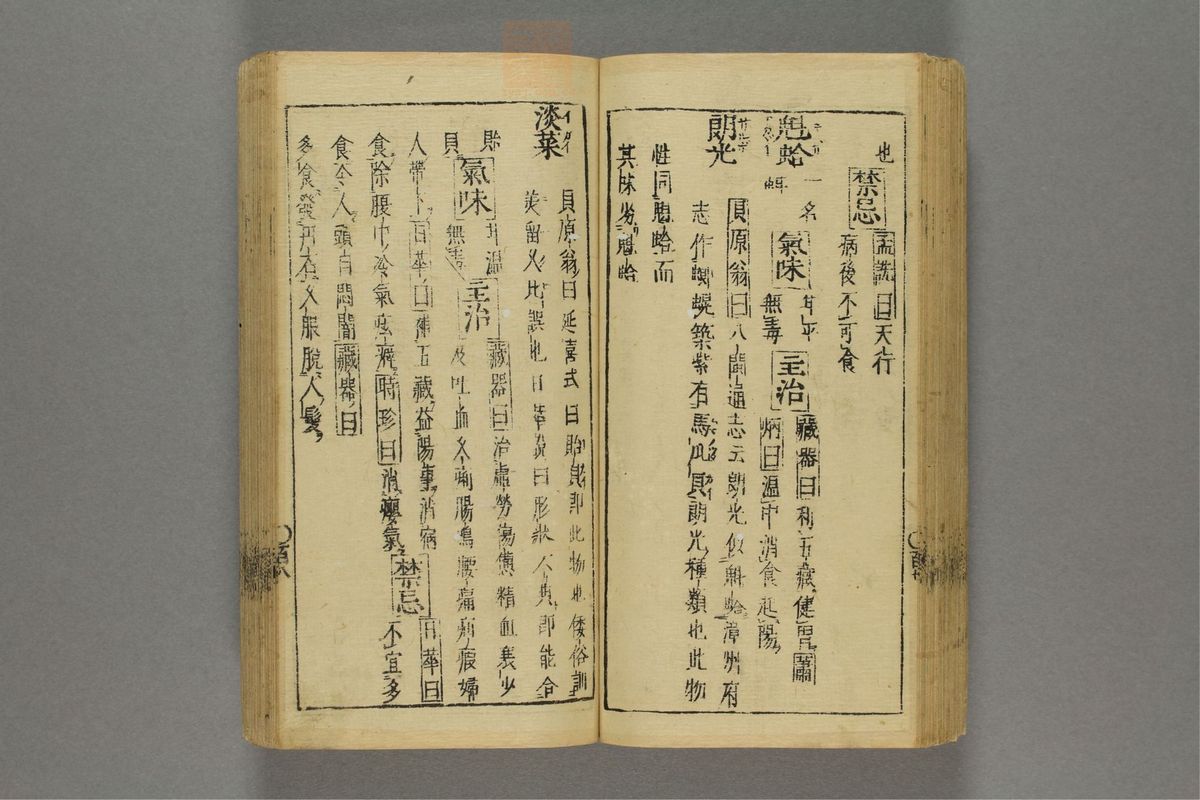 也
禁忌 孟詵曰天行
病後不可食
魁蛤 一名
氣味 甘平
無毒
主治 藏器曰利五藏健胃蕭
炳曰温中消食起陽
朗光
貝原翁曰八閩通志云朗光似魁蛤漳州府
志作蟳築紫有馬此貝朗光種類也此物
性同魁蛤而
其味劣魁蛤
淡菜
イカイ
貝原翁曰延喜式曰貽貝即此物也倭俗訓
美留又此誤也日華説曰形狀不典即能合
貽貝
氣味 甘温
無毒
主治 藏器曰治虛勞傷憊精血衰少
及吐血久痢腸鳴腰痛疝瘕婦
人帶下日華曰補五藏益陽事消宿
食除腰中冷氣痃癖時珍曰消癭氣
禁忌 日華曰
不宜多
食令人頭目悶闇藏器曰
多食發丹石又脫人髮